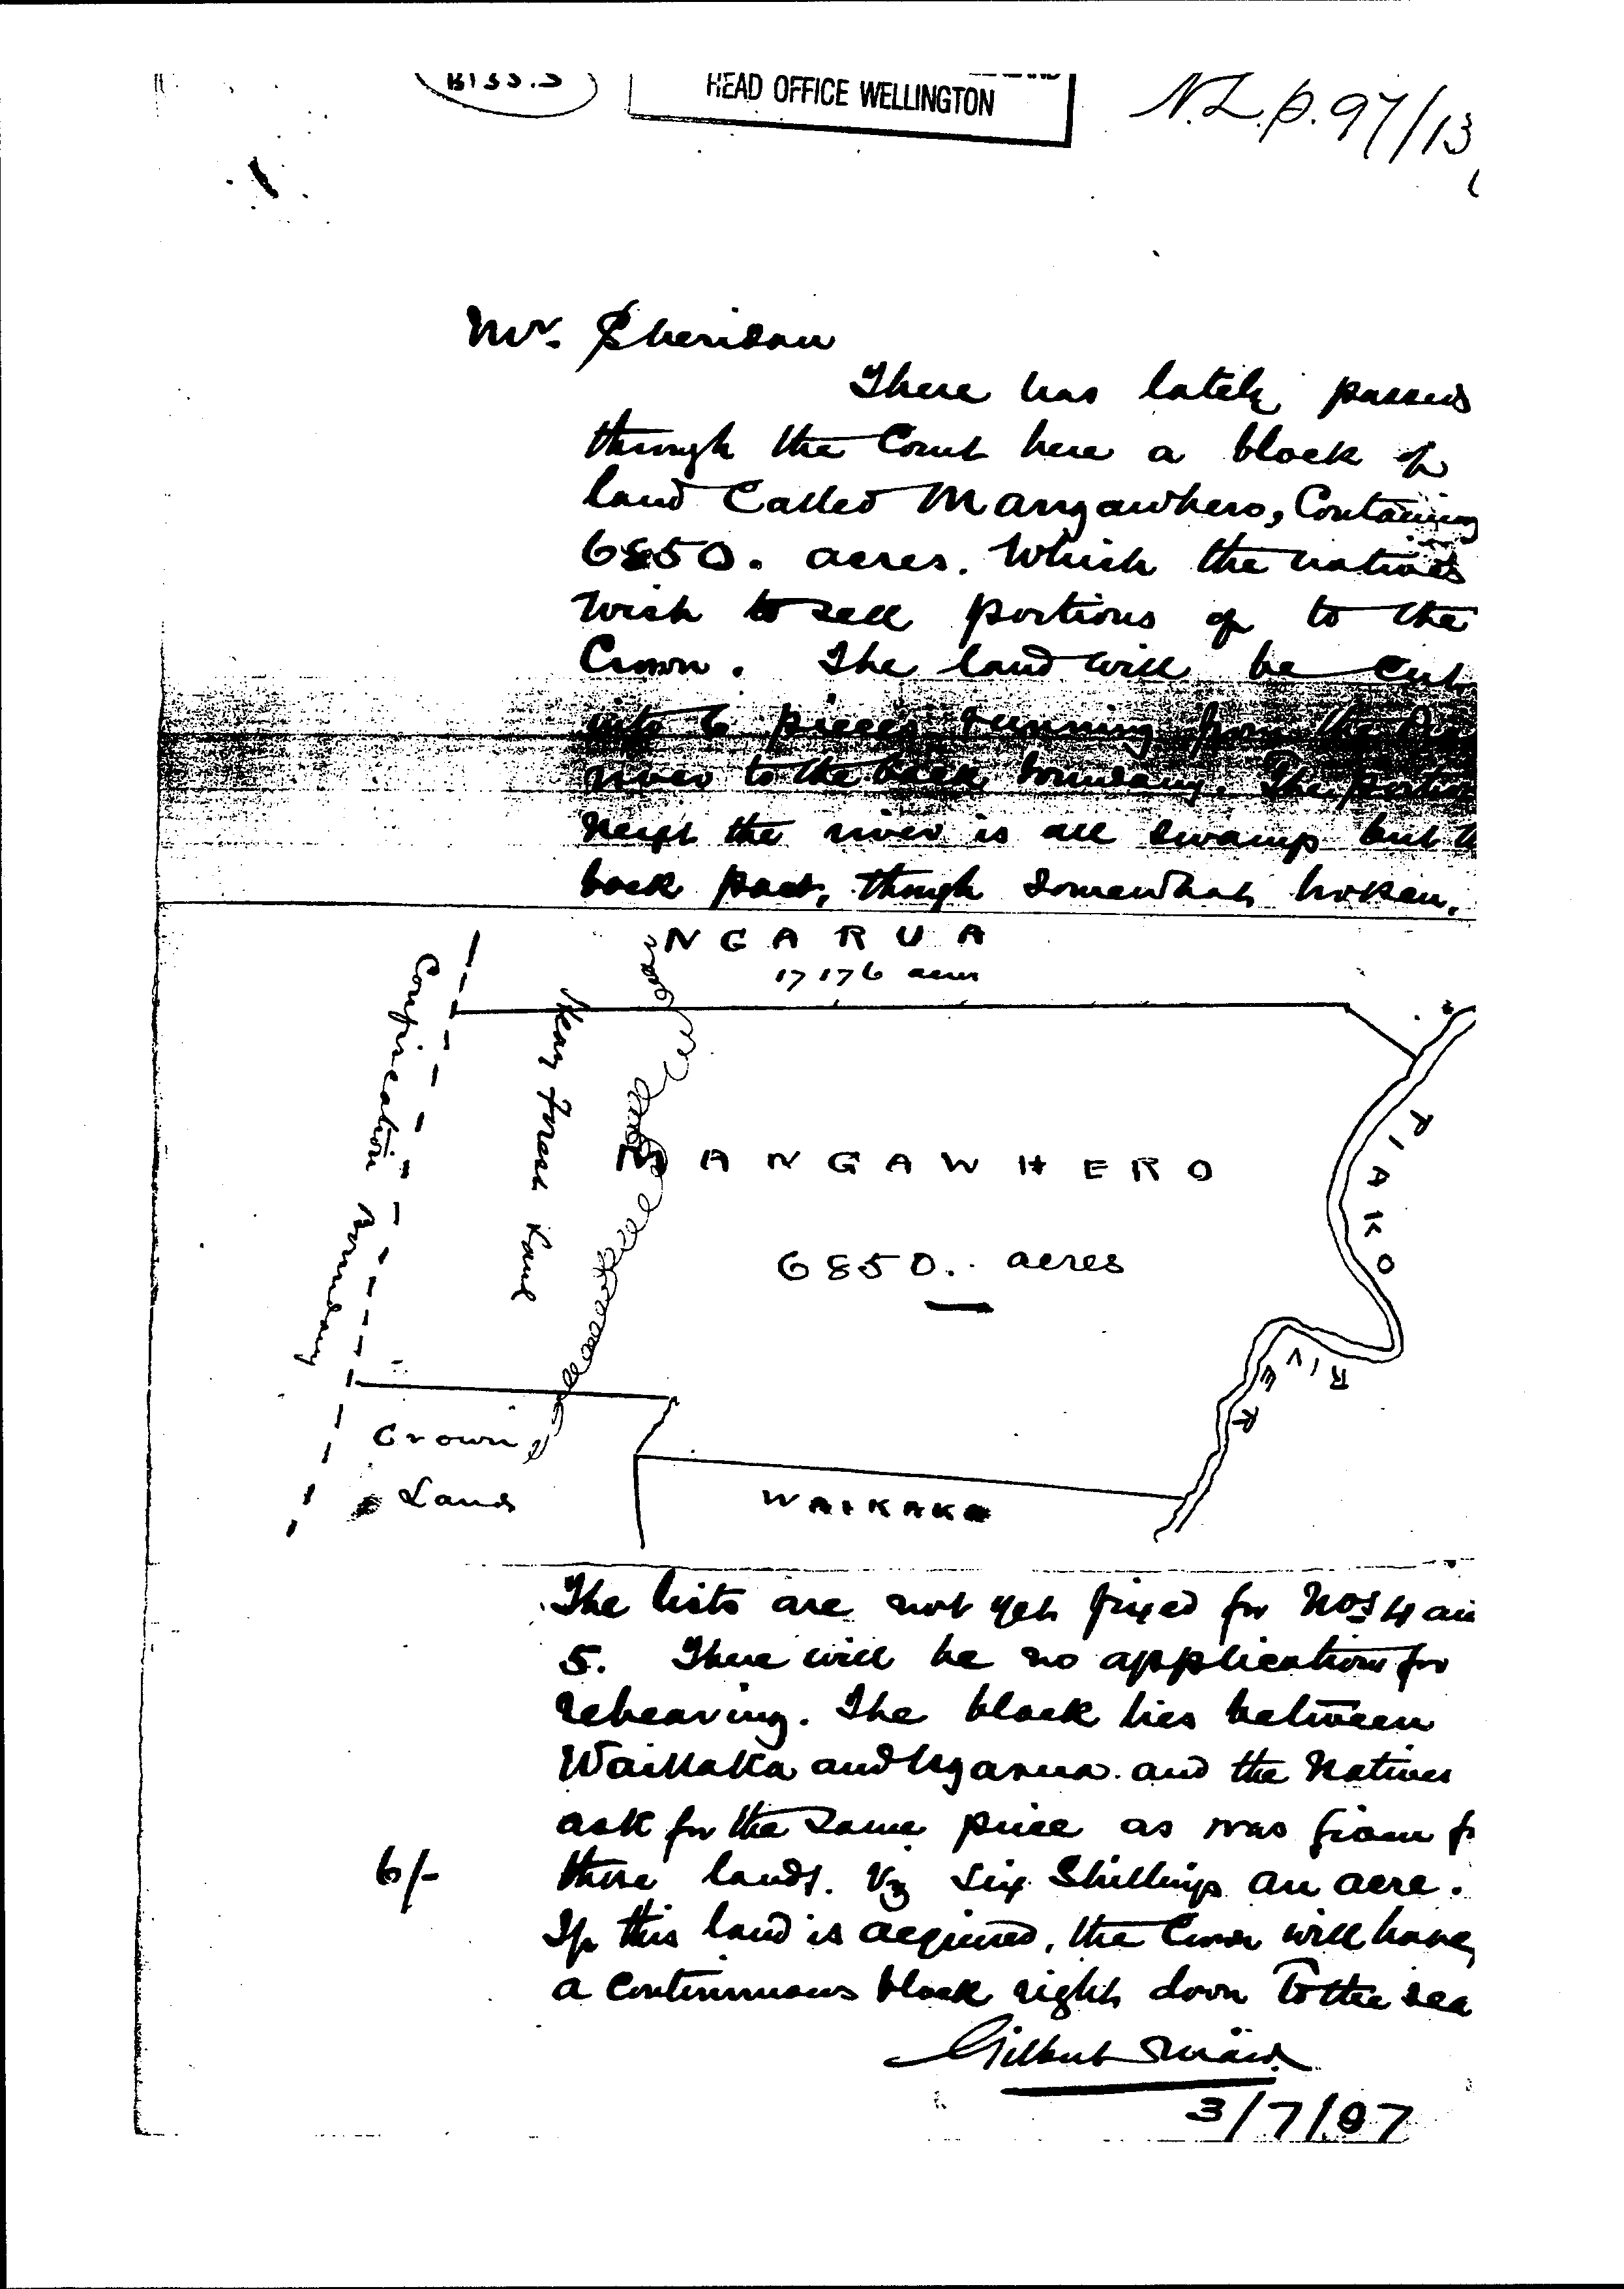 B133.S
HEAD OFFICE WELLINGTON
N.L.P. 97/13
Mr. Sheridan
There has lately passed
through the Court here a block of
land called Mangawhero, Containing
6850. acres. Which the natives
wish to sell portions of to the
Crown. The land will be cut
into 6 pieces running from the
river to the back boundary. The portion
next the river is all swamp but
back part, though somewhat broken.
NGARUA
17176 acres
Confiscation Boundary
Heavy Forest Land
MANGAWHERO
6850. acres
PIAKO
RIVER
Crown
Lands
WAIKAKA
The lists are not yet fixed for Nos 4
5. There will be no application for
rehearing. The block lies between
Waikaka and Ngarua. and the Natives
ask for the same price as was given
these lands. Vz Six Shillings an acre.
6/-
If this land is acquired, the Crown will have
a continuous block right down to the sea
Gilbert Mair
3/7/97